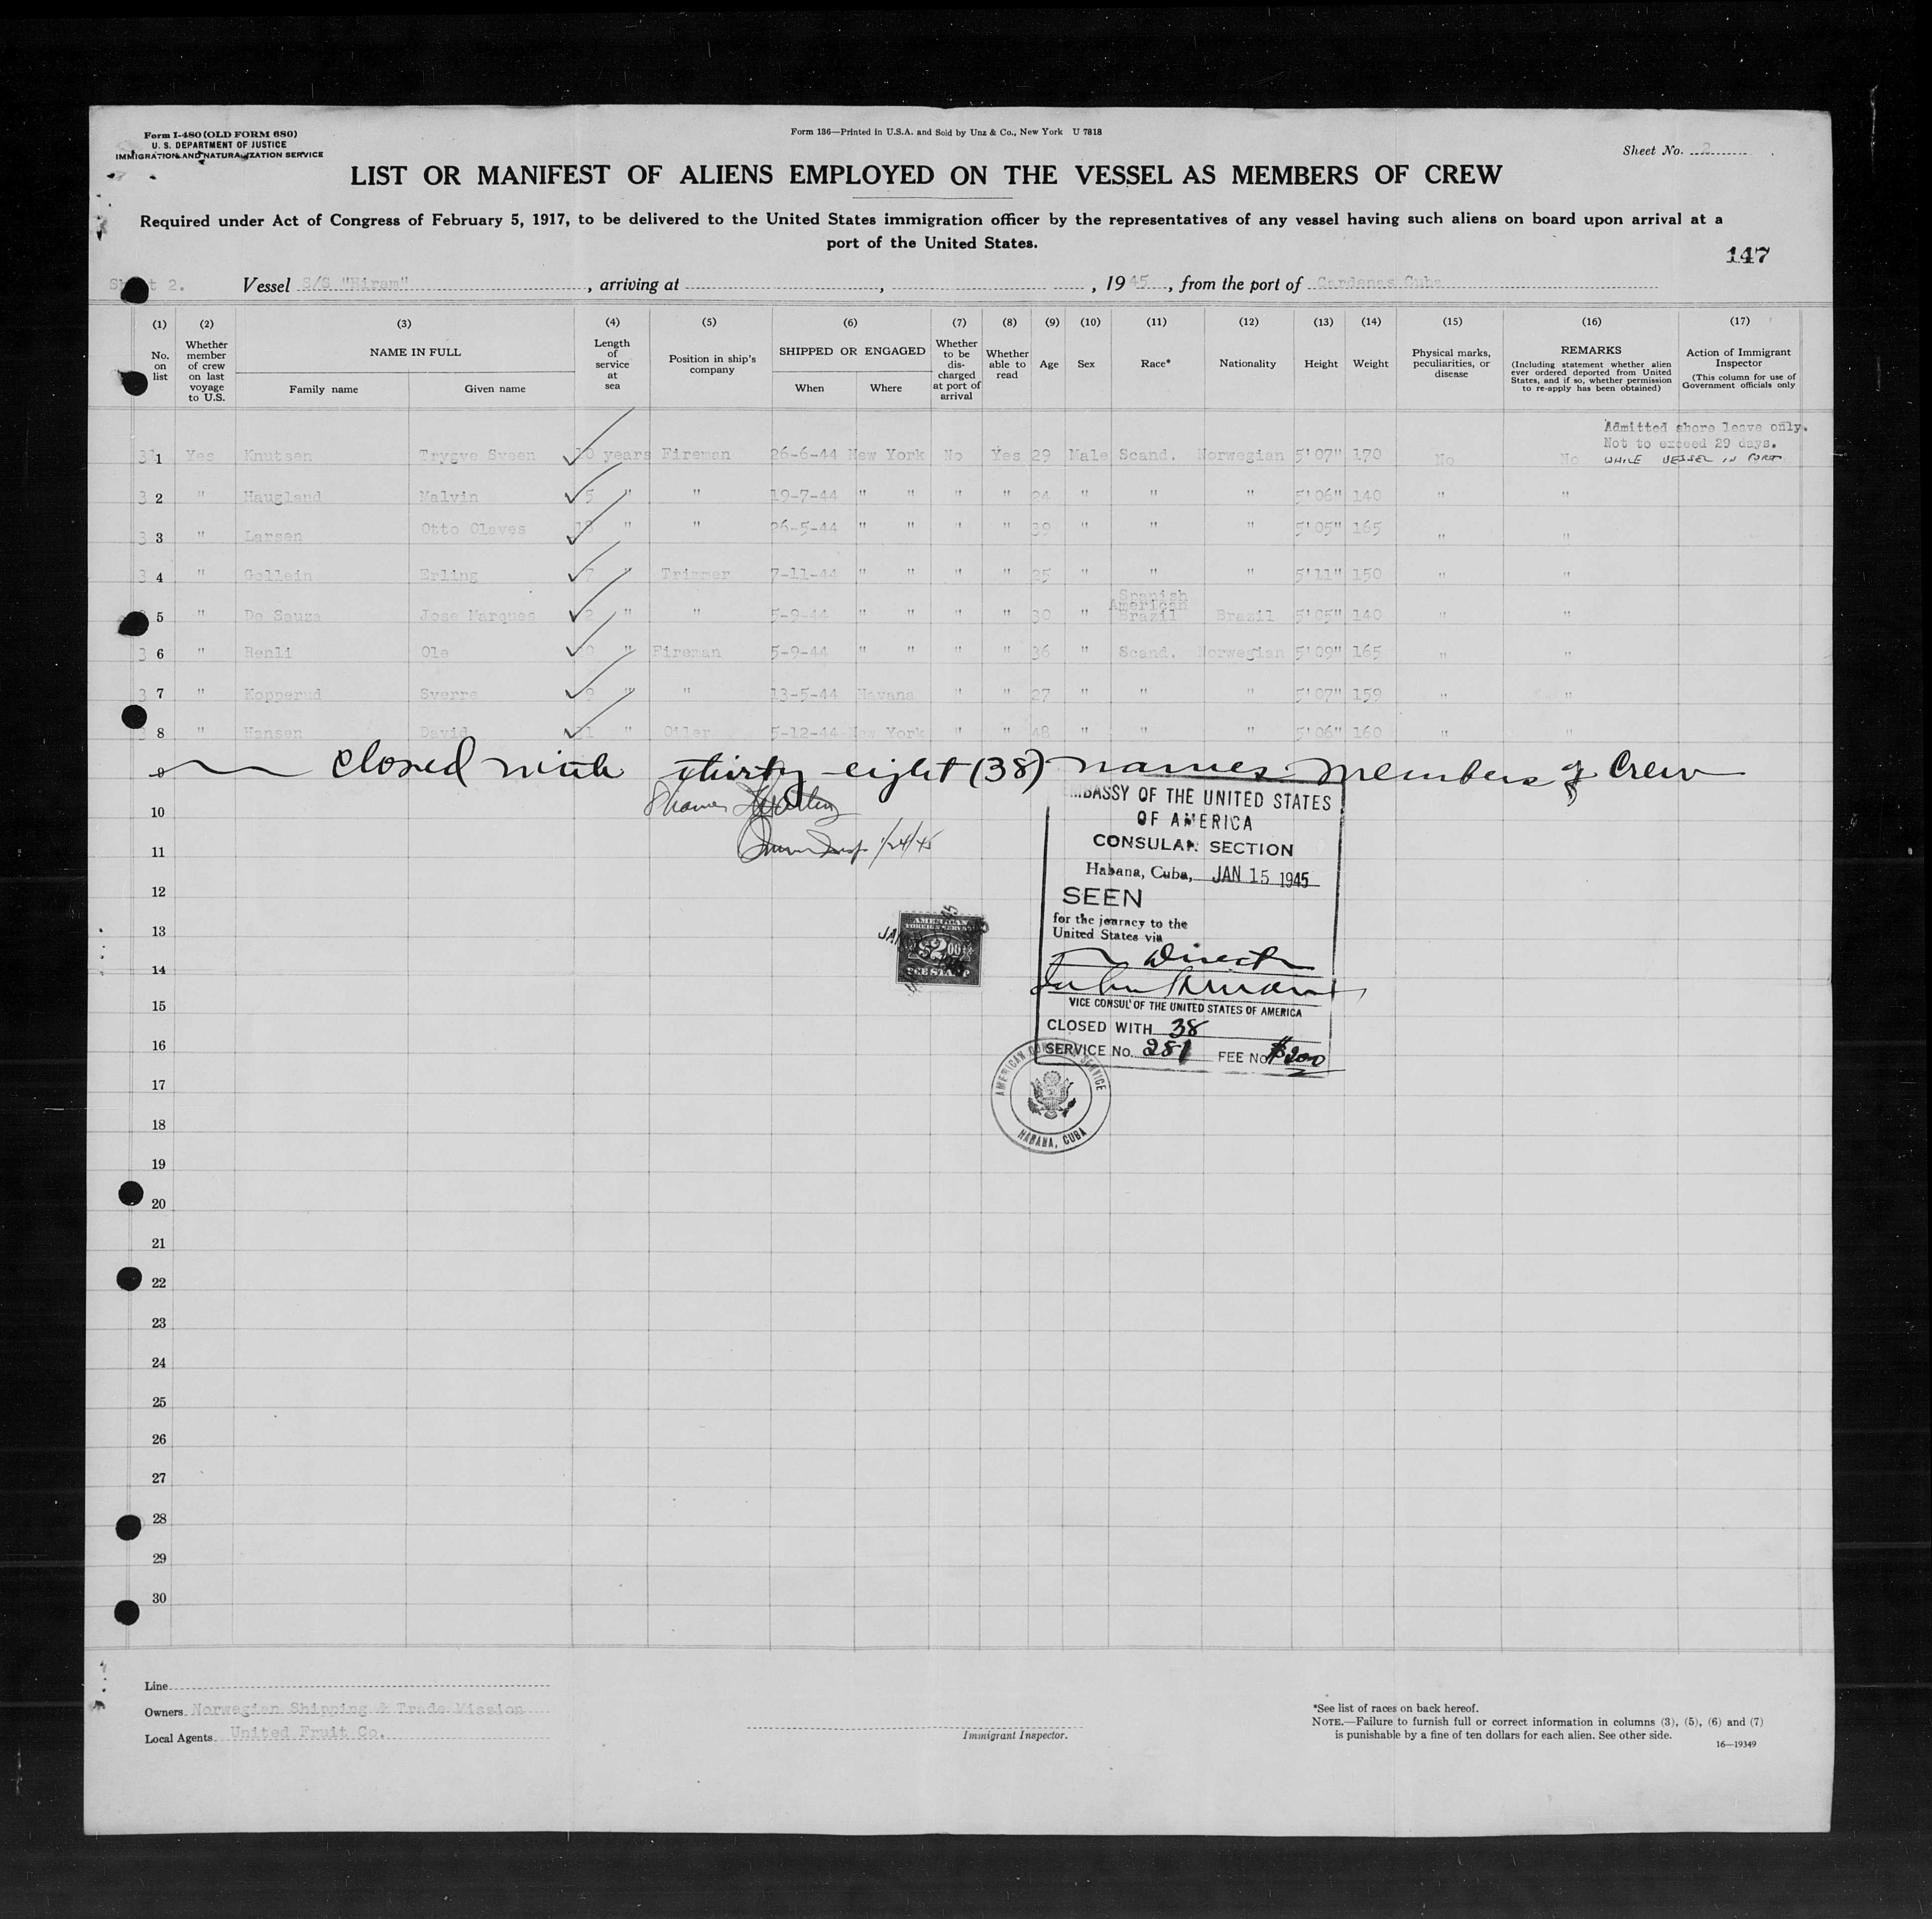 Form I-480 (OLD FORM 680)
U. S. DEPARTMENT OF JUSTICE
IMMIGRATION AND NATURALIZATION SERVICE
Form 136—Printed in U.S.A. and Sold by Unz & Co., New York U 7818
Sheet No. 2
LIST OR MANIFEST OF ALIENS EMPLOYED ON THE VESSEL AS MEMBERS OF CREW
Required under Act of Congress of February 5, 1917, to be delivered to the United States immigration officer by the representatives of any vessel having such aliens on board upon arrival at a
port of the United States.
147
Sheet 2. Vessel S/S "Hiram", arriving at , , 1945, from the port of Cardenas Cuba
(1) (2) (3) (4) (5) (6) (7) (8) (9) (10) (11) (12) (13) (14) (15) (16) (17)
No. on list
Whether member of crew on last voyage to U.S.
NAME IN FULL
Family name Given name
Length of service at sea
Position in ship's company
SHIPPED OR ENGAGED
When Where
Whether to be discharged at port of arrival
Whether able to read
Age
Sex
Race*
Nationality
Height
Weight
Physical marks, peculiarities, or disease
REMARKS
(Including statement whether alien ever ordered deported from United States, and if so, whether permission to re-apply has been obtained)
Action of Immigrant Inspector
(This column for use of Government officials only
Admitted shore leave only.
Not to exceed 29 days.
WHILE VESSEL IN PORT
31 1 Yes Knutsen Trygve Sveen 10 years Fireman 26-6-44 New York No Yes 29 Male Scand. Norwegian 5'07" 170 No No
3 2 " Haugland Malvin 5 " " 19-7-44 " " " " 24 " " " 5'06" 140 " "
3 3 " Larsen Otto Olaves 18 " " 26-5-44 " " " " 39 " " " 5'05" 165 " "
3 4 " Gellein Erling 7 " Trimmer 7-11-44 " " " " 25 " " " 5'11" 150 " "
5 " De Sauza Jose Marques 2 " " 5-9-44 " " " " 30 " Spanish American Brazil Brazil 5'05" 140 " "
3 6 " Renli Ole 20 " Fireman 5-9-44 " " " " 36 " Scand. Norwegian 5'09" 165 " "
3 7 " Kopperud Sverre 9 " " 13-5-44 Havana " " 27 " " " 5'07" 159 " "
3 8 " Hansen David 31 " Oiler 5-12-44 New York " " 48 " " " 5'06" 160 " "
9 closed with thirty eight (38) names members of Crew
10
11
1/24/45
12
13
14
15
16
17
18
19
20
21
22
23
24
25
26
27
28
29
30
EMBASSY OF THE UNITED STATES
OF AMERICA
CONSULAR SECTION
Habana, Cuba, JAN 15 1945
SEEN
for the journey to the
United States via
Direct
VICE CONSUL OF THE UNITED STATES OF AMERICA
CLOSED WITH 38
SERVICE No. 281 FEE No. $2.00
AMERICAN
FOREIGN SERVICE
$2.00
FEE STAMP
AMERICAN CONSULAR SERVICE
HABANA, CUBA
Line
Owners Norwegian Shipping & Trade Mission
Local Agents United Fruit Co.
Immigrant Inspector.
*See list of races on back hereof.
NOTE.—Failure to furnish full or correct information in columns (3), (5), (6) and (7)
is punishable by a fine of ten dollars for each alien. See other side.
16—19349